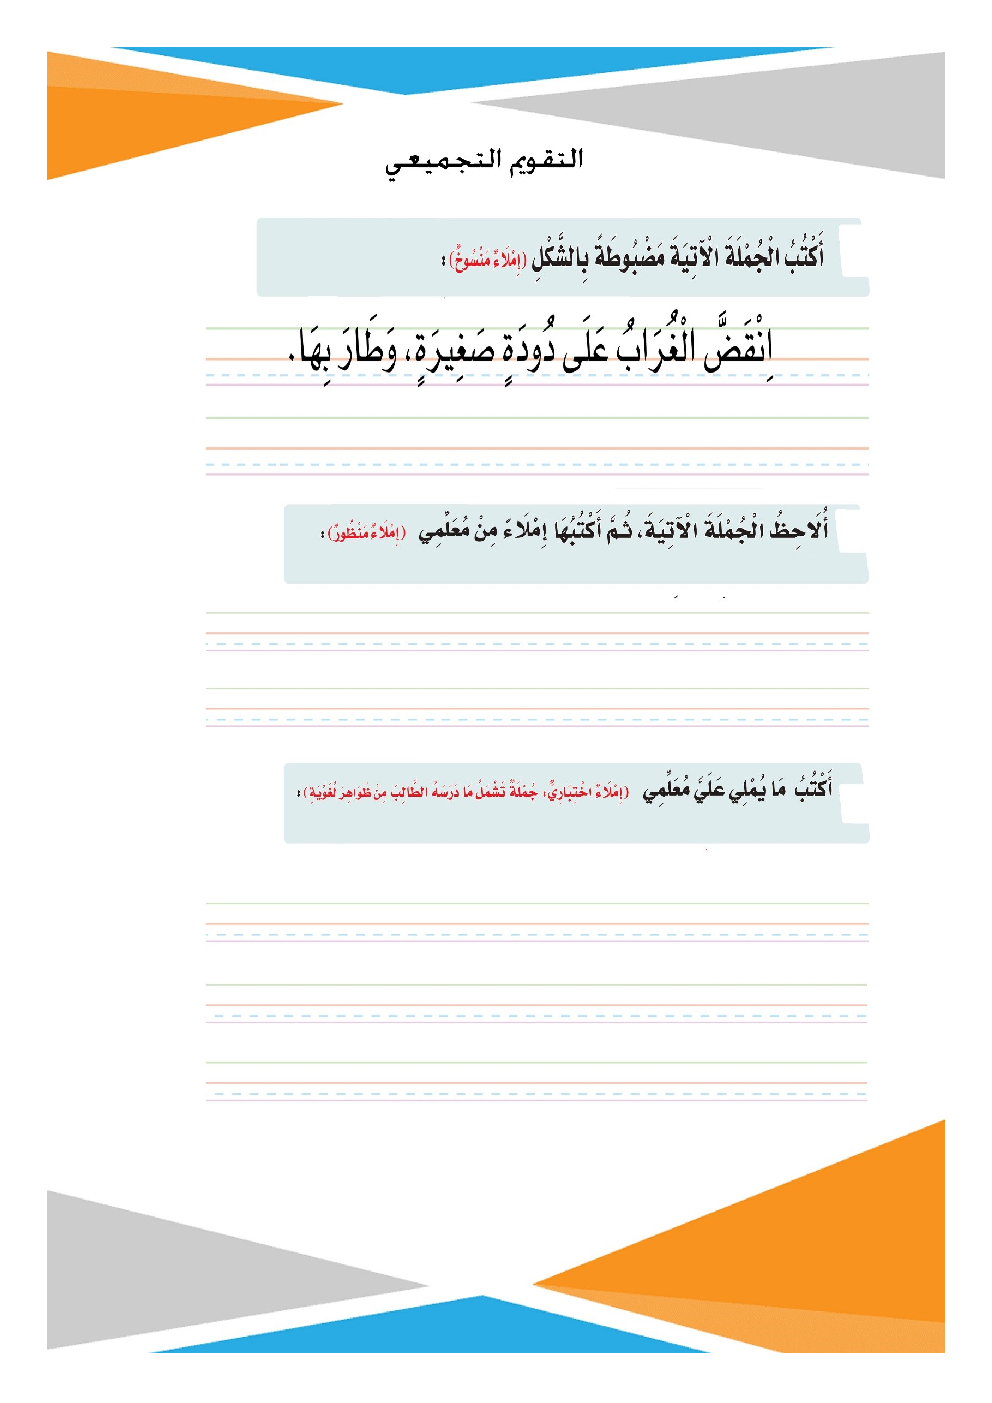 التقويم التجميعي
أَكْتُبُ الْجُمْلَةَ الْآتِيَةَ مَضْبُوطَةً بِالشَّكْلِ (إِمْلَاءٌ مَنْسُوخٌ) :
اِنْقَضَّ الْغُرَابُ عَلَى دُودَةٍ صَغِيرَةٍ، وَطَارَ بِهَا.
أُلَاحِظُ الْجُمْلَةَ الْآتِيَةَ، ثُمَّ أَكْتُبُهَا إِمْلَاءً مِنْ مُعَلِّمِي (إِمْلَاءٌ مَنْظُورٌ) :
أَكْتُبُ مَا يُمْلِي عَلَيَّ مُعَلِّمِي (إِمْلَاءٌ اخْتِبَارِيٌّ: جُمْلَةٌ تَشْمَلُ مَا دَرَسَهُ الطَّالِبُ مِنْ ظَوَاهِرَ لُغَوِيَّةٍ) :